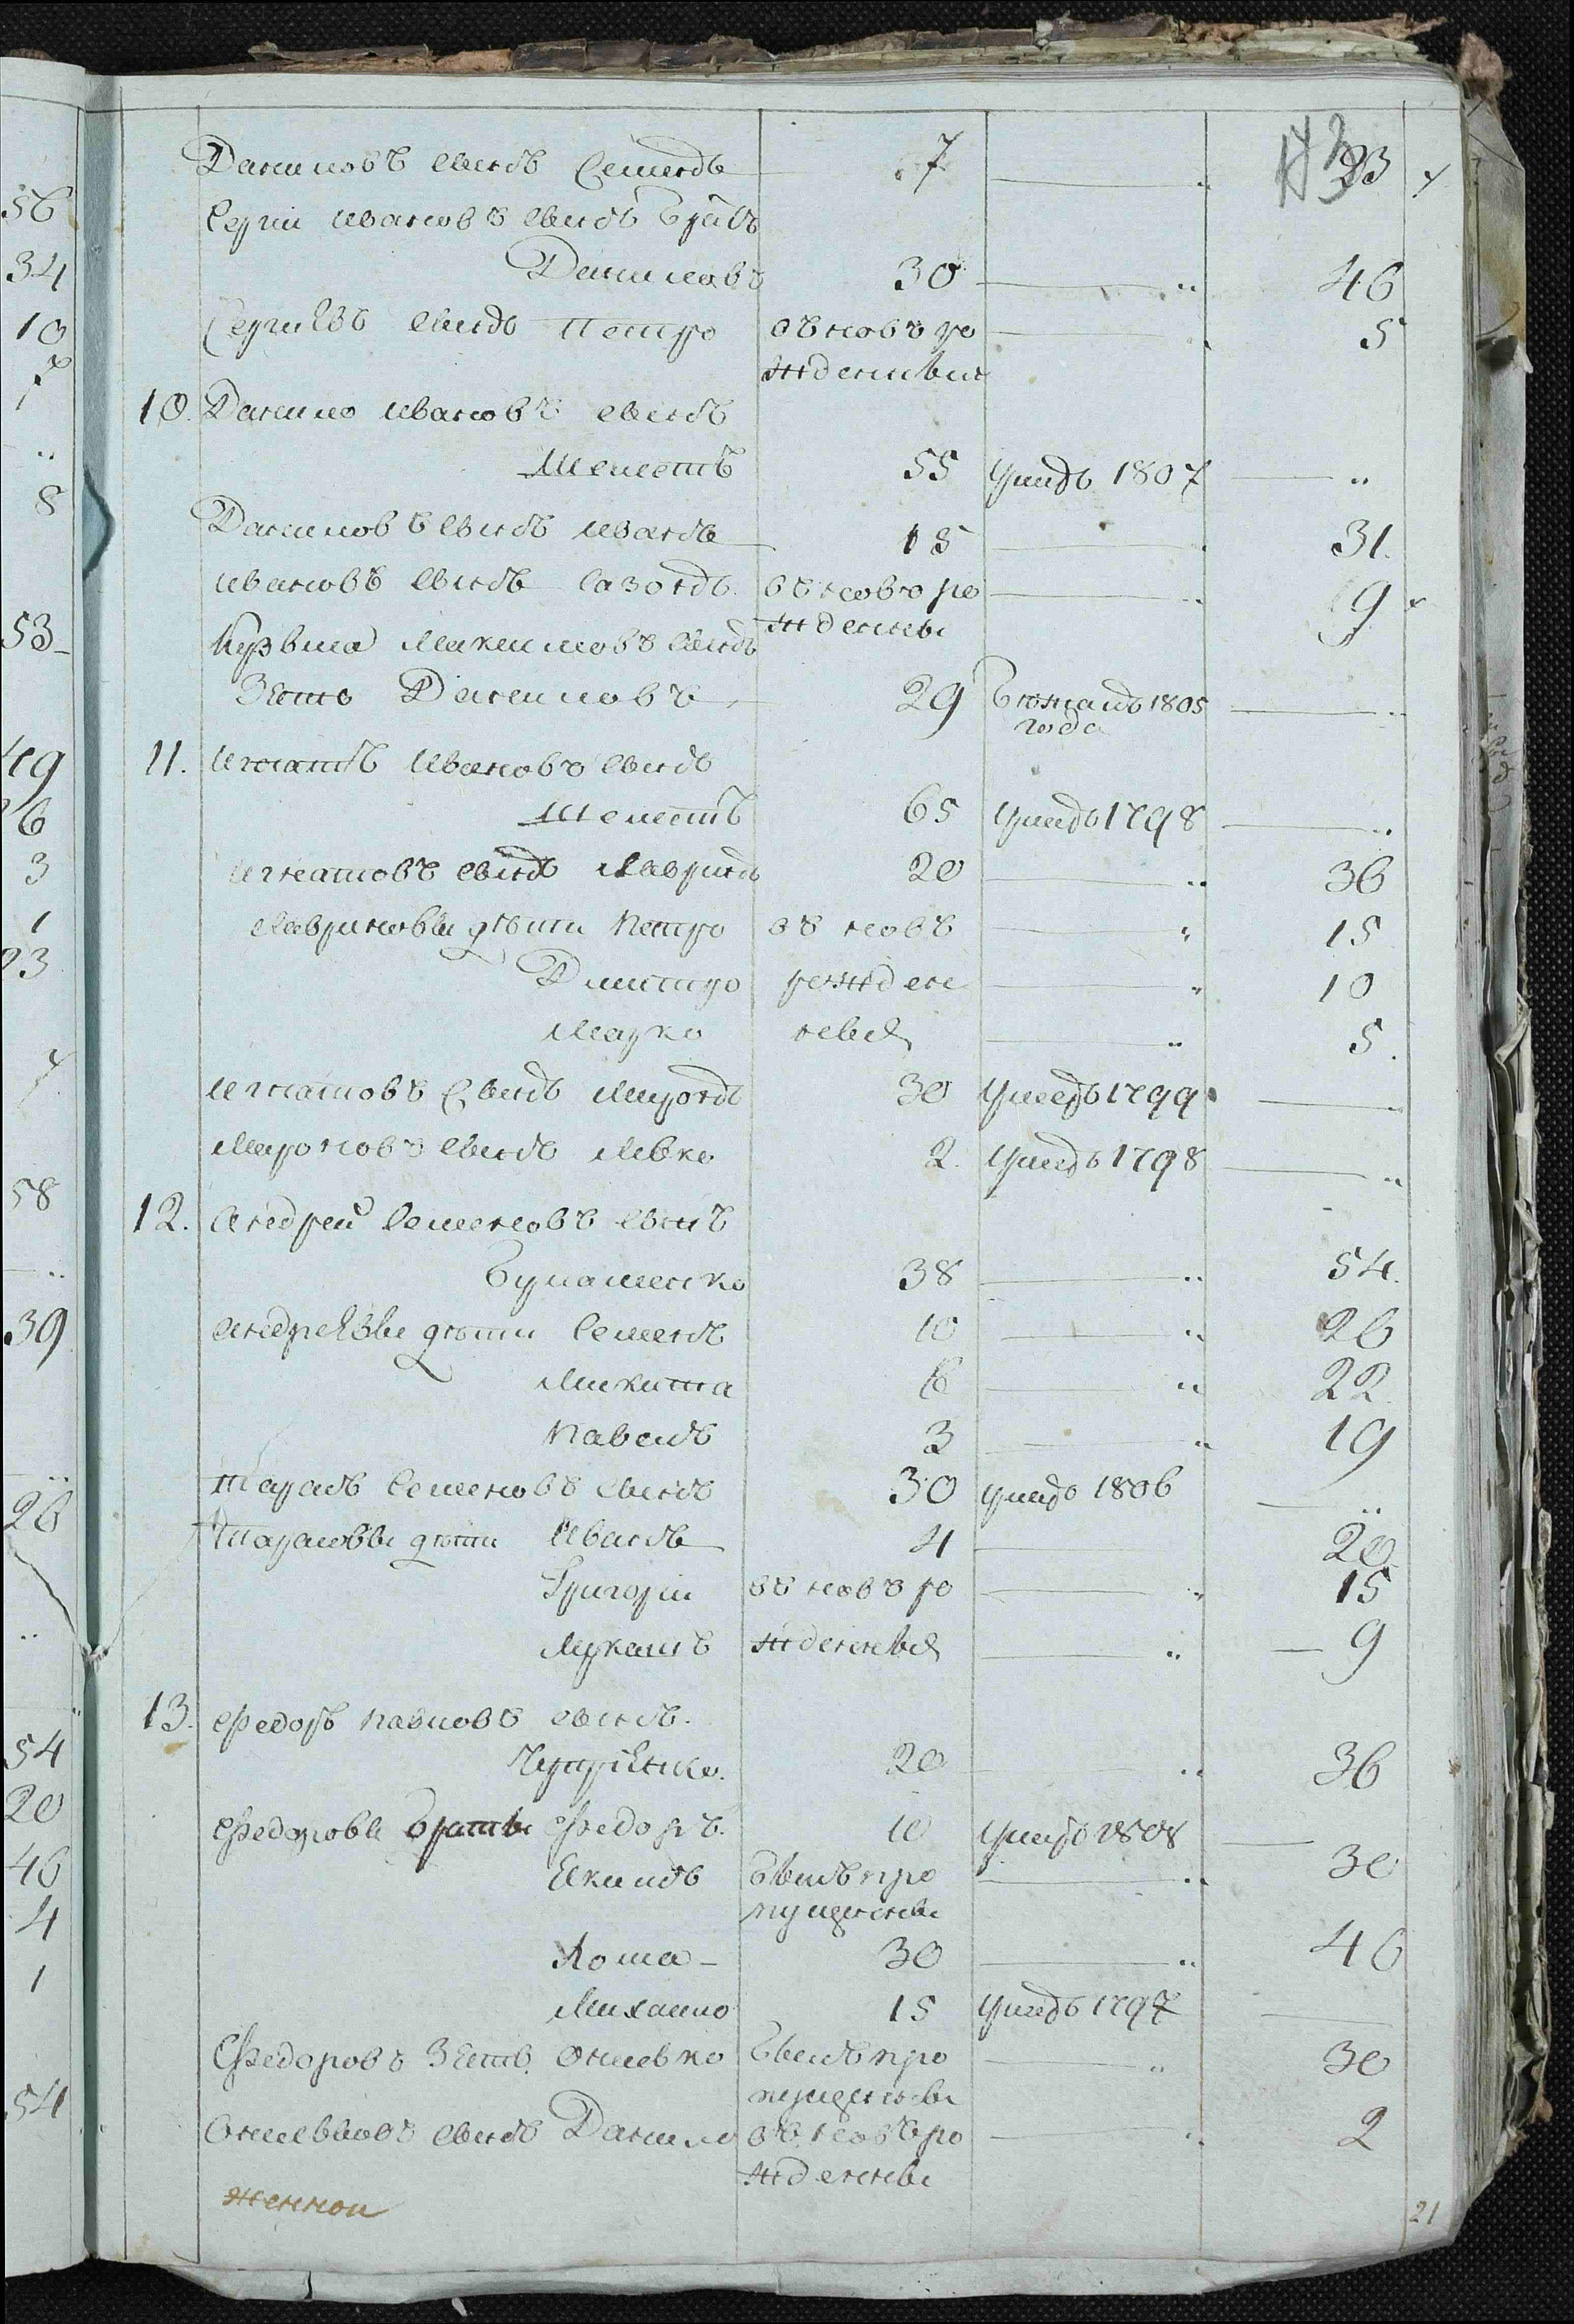 Даниловъ сынъ Семенъ 7 — „ 23
Сергій Ивановъ сынъ братъ
Даниловъ 30 — „ 46
Сергіевъ сынъ Петро въ новъ ро — „ 5
жденный
10. Данило Ивановъ сынъ
Шелестъ 55 умеръ 1807 — „
Даниловъ сынъ Иванъ 15 — „ 31.
Ивановъ сынъ Сазонъ въ новъ ро — „ 9
жденны
Кузьма Максимовъ сынъ
Зять Даниловъ 29 бежалъ 1805 — „
года
11. Игнатъ Ивановъ сынъ
Шелестъ 65 умеръ 1798 — „
Игнатовъ сынъ Лавринъ 20 — „ 36
Лавриновы дѣти Петро въ новъ — „ 15
Дмитро рожден — „ 10
Марко ныя — „ 5.
Игнатовъ сынъ Миронъ 30 умеръ 1799 — „
Мироновъ сынъ Левко 2. умеръ 1798 — „
12. Андрей Семеновъ сынъ
38 — „ 54.
Андреевы дѣти Семенъ 10 — „ 26
Микита 6 — „ 22.
Павелъ 3 — „ 19
Тарасъ Семеновъ сынъ 30 умеръ 1806 — „
Тарасовы дѣти Иванъ 4 — 20
Григорій въ новъ ро — „ 15
Лукашъ жденныя — „ 9
13. Федоръ Павловъ сынъ.
20 — „ 36
Федоровы братья Федоръ. 10 умеръ 1808 —
Екимъ былъ про — „ 30
пущенны
Хома 30 — „ 46
Михайло 15 умеръ 1797 —
Федоровъ Зять былъ про — „ 30
пущенны
сынъ Данило въ новъ ро — „ 2
жденны
женной
21
56
34
10
7
1
„
8
53
49
6
3
1
23
58
„
39
„
26
„
54
20
46
4
1
54